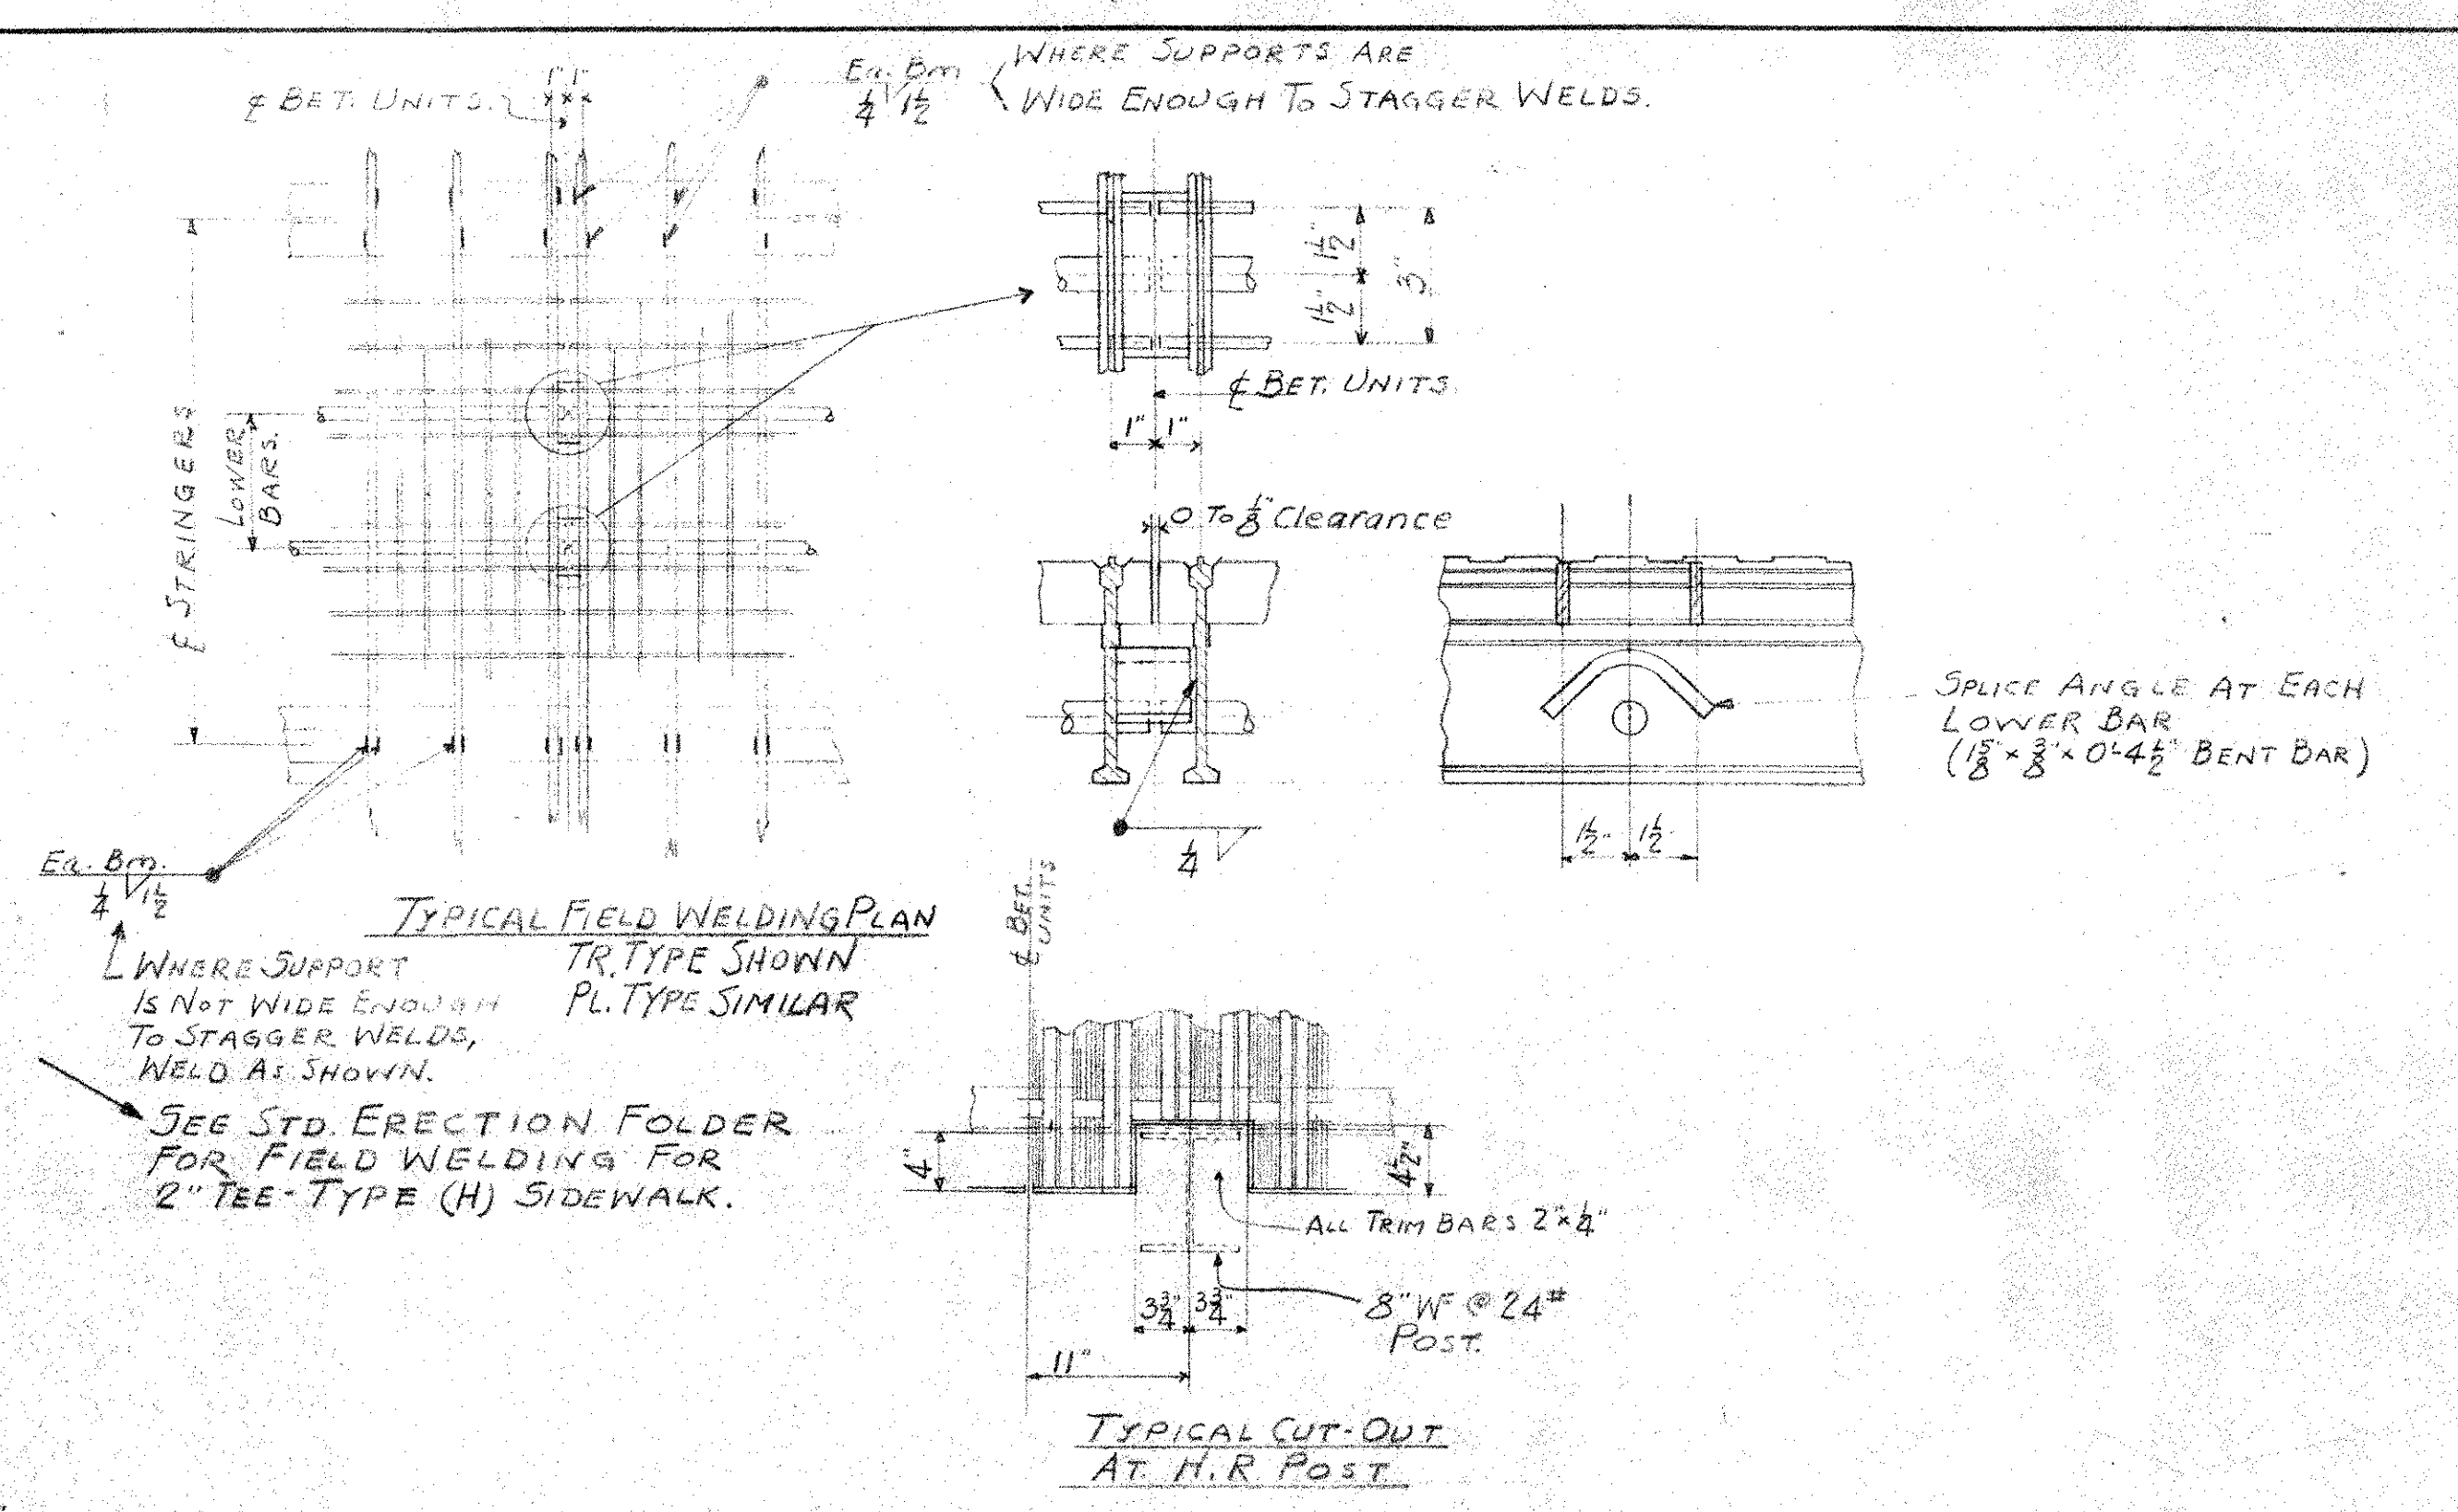 ℄ BET. UNITS.
1" 1"
Ea. Bm
1/4 1 1/2
WHERE SUPPORTS ARE
WIDE ENOUGH TO STAGGER WELDS.
1 1/2"
1 1/2"
3"
℄ BET. UNITS
1" 1"
℄ STRINGERS
LOWER
BARS.
0 To 1/8" Clearance
SPLICE ANGLE AT EACH
LOWER BAR
(1 5/8" × 3/8" × 0'-4 1/2" BENT BAR)
1 1/2" 1 1/2"
1/4
Ea. Bm.
1/4 1 1/2
WHERE SUPPORT
IS NOT WIDE ENOUGH
TO STAGGER WELDS,
WELD AS SHOWN.
TYPICAL FIELD WELDING PLAN
TR. TYPE SHOWN
PL. TYPE SIMILAR
SEE STD. ERECTION FOLDER
FOR FIELD WELDING FOR
2" TEE-TYPE (H) SIDEWALK.
℄ BET.
UNITS
4"
4 1/2"
ALL TRIM BARS 2" × 1/4"
3 3/4" 3 3/4"
8" WF @ 24#
POST.
11"
TYPICAL CUT-OUT
AT H.R POST